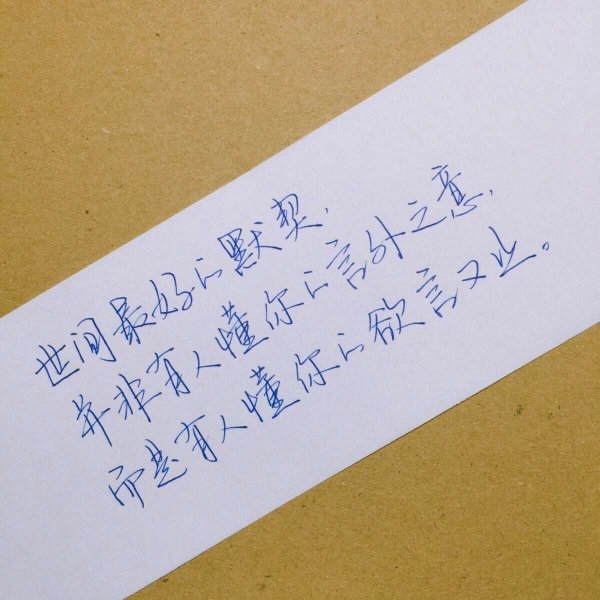 世间最好的默契，
并非有人懂你的言外之意，
而是有人懂你的欲言又止。